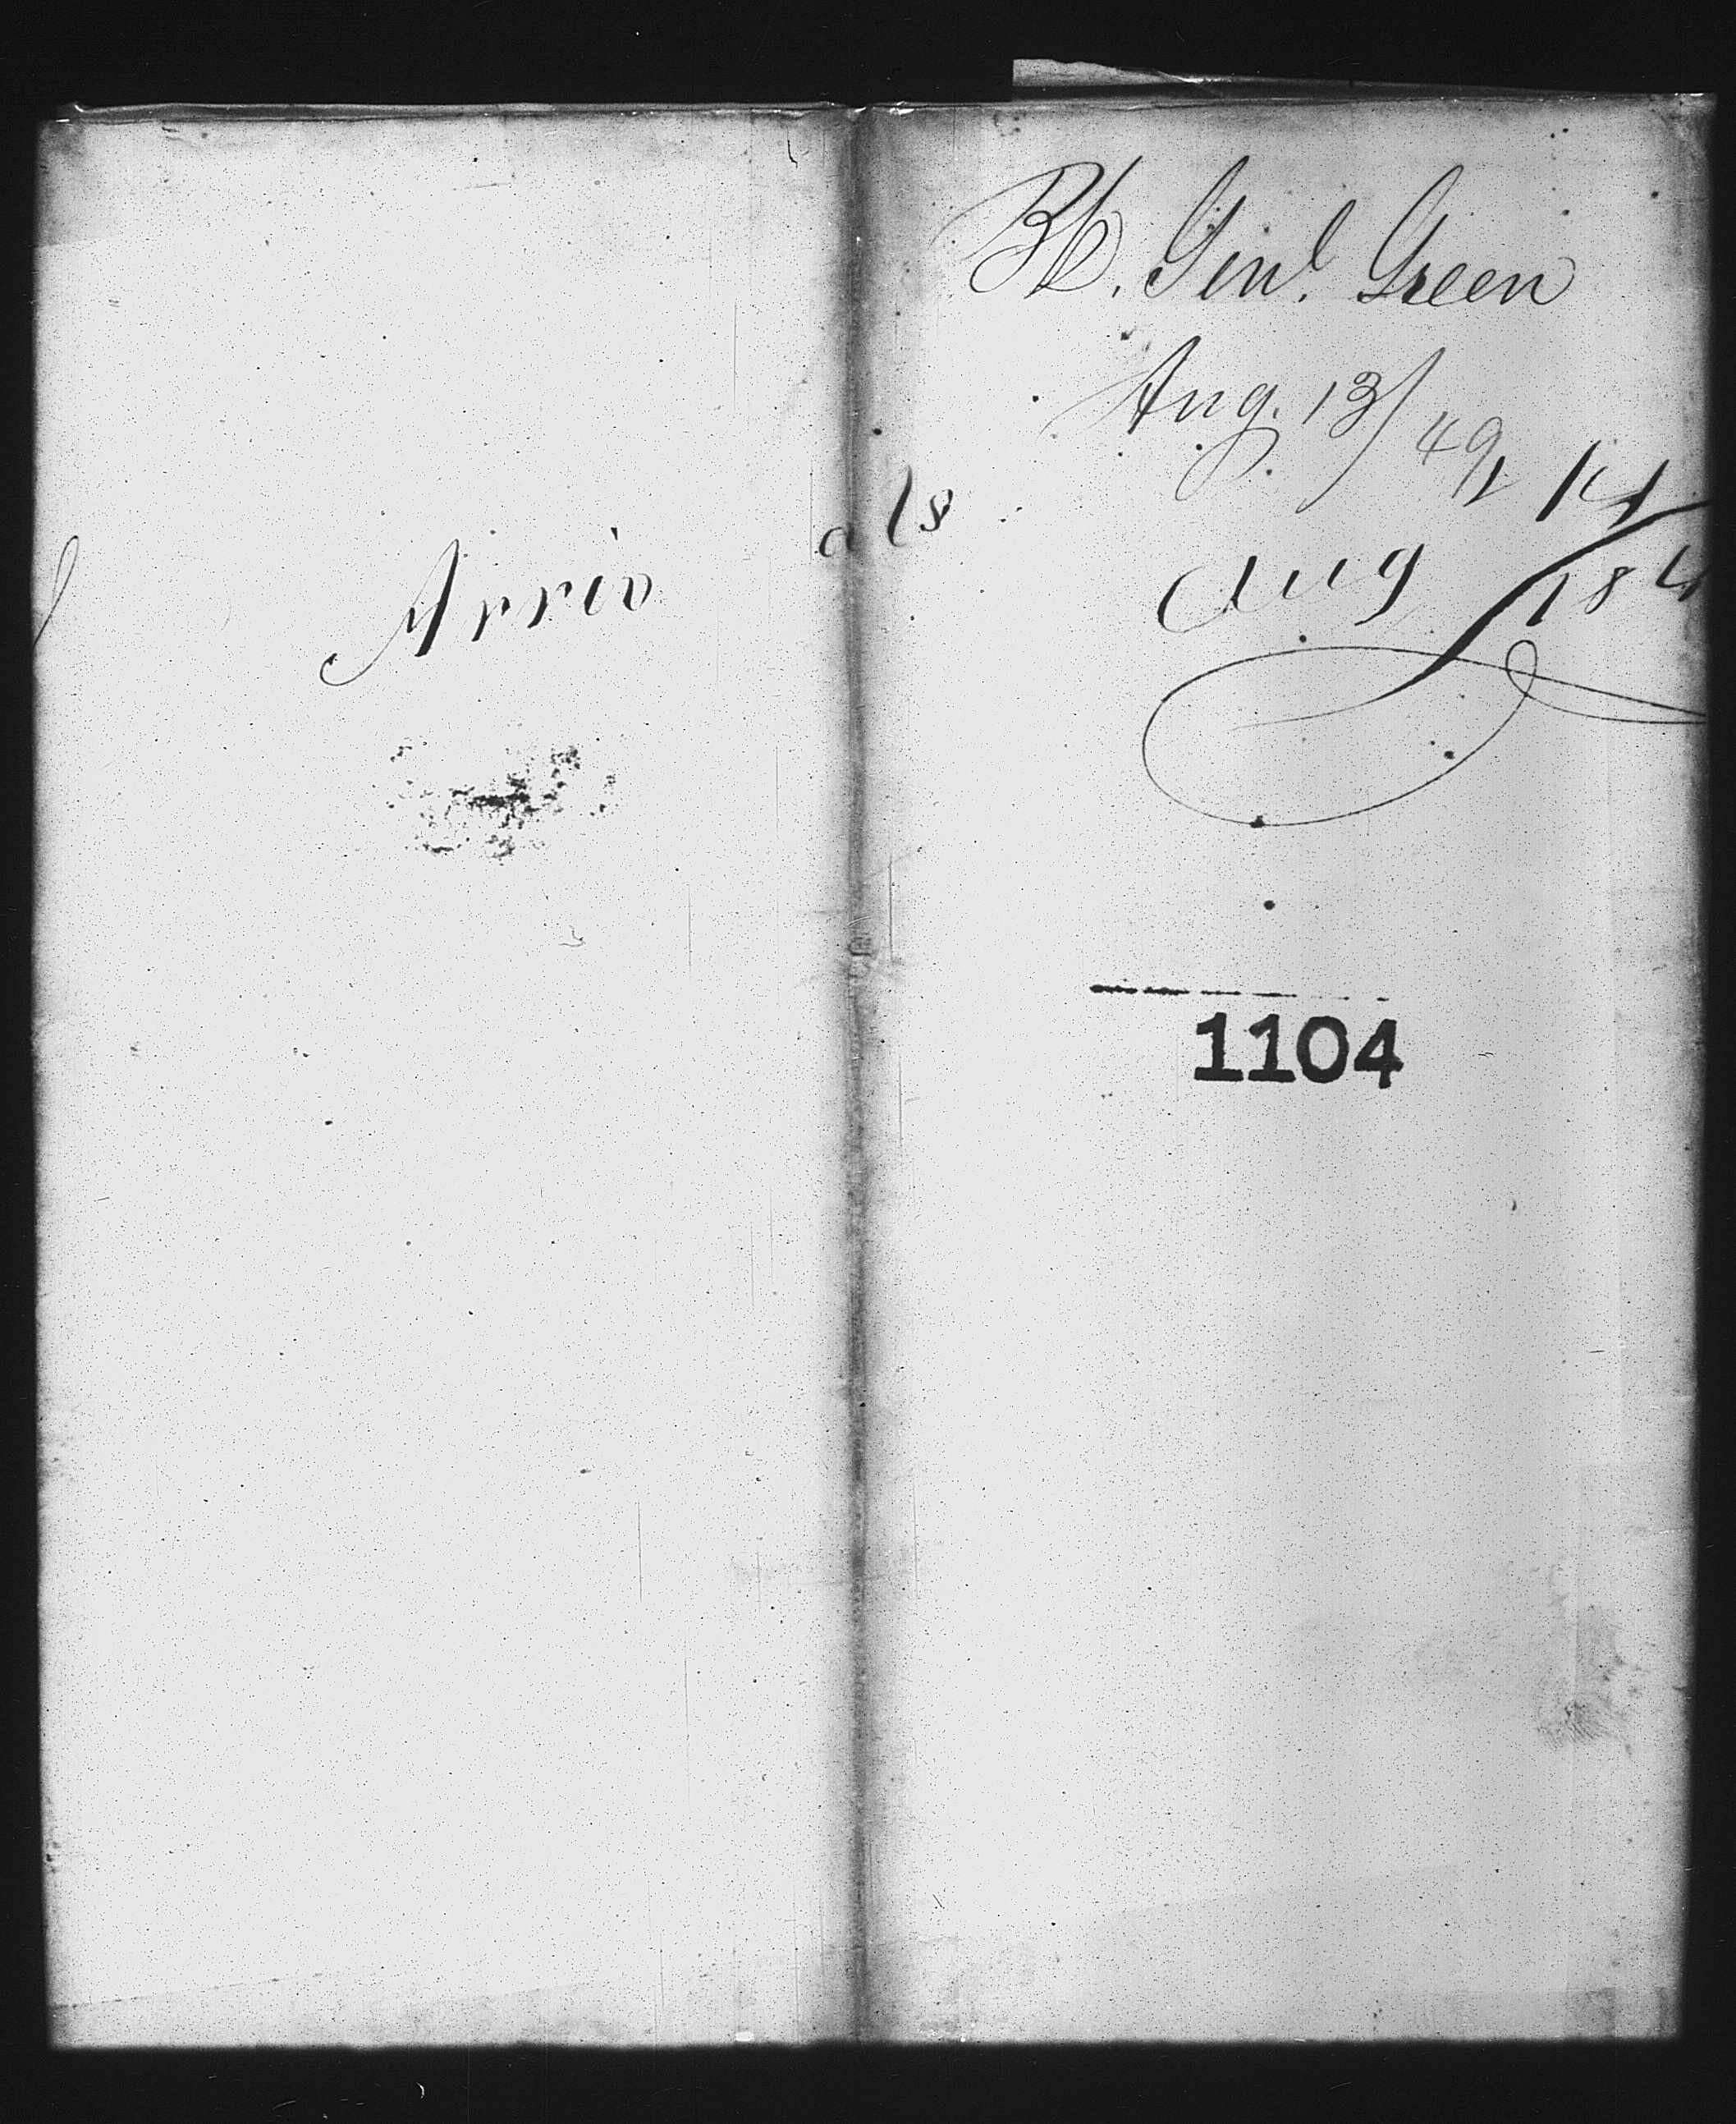 Bk. Genl. Green
Aug. 13/49
Arrivals Aug 14
184
1104